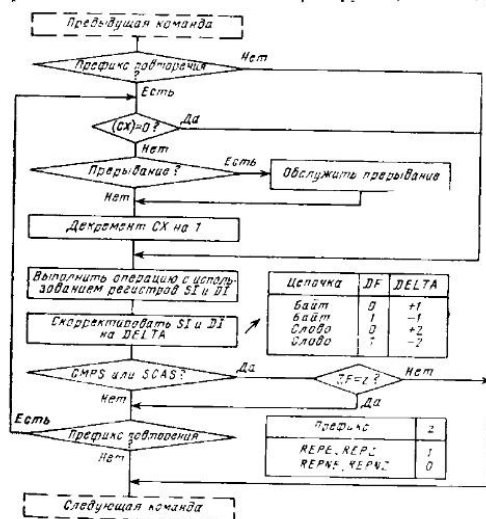 Предыдущая команда
Префикс повторения
?
Нет
Есть
(CX)=0?
Да
Нет
Прерывание?
Есть
Обслужить прерывание
Нет
Декремент CX на 1
Выполнить операцию с исполь-
зованием регистров SI и DI
Скорректировать SI и DI
на DELTA
Цепочка DF DELTA
Байт 0 +1
Байт 1 -1
Слово 0 +2
Слово 1 -2
CMPS или SCAS?
Да
ZF=z?
Нет
Нет
Да
Есть
Префикс повторения
?
Нет
Префикс z
REPE, REPZ 1
REPNE, REPNZ 0
Следующая команда